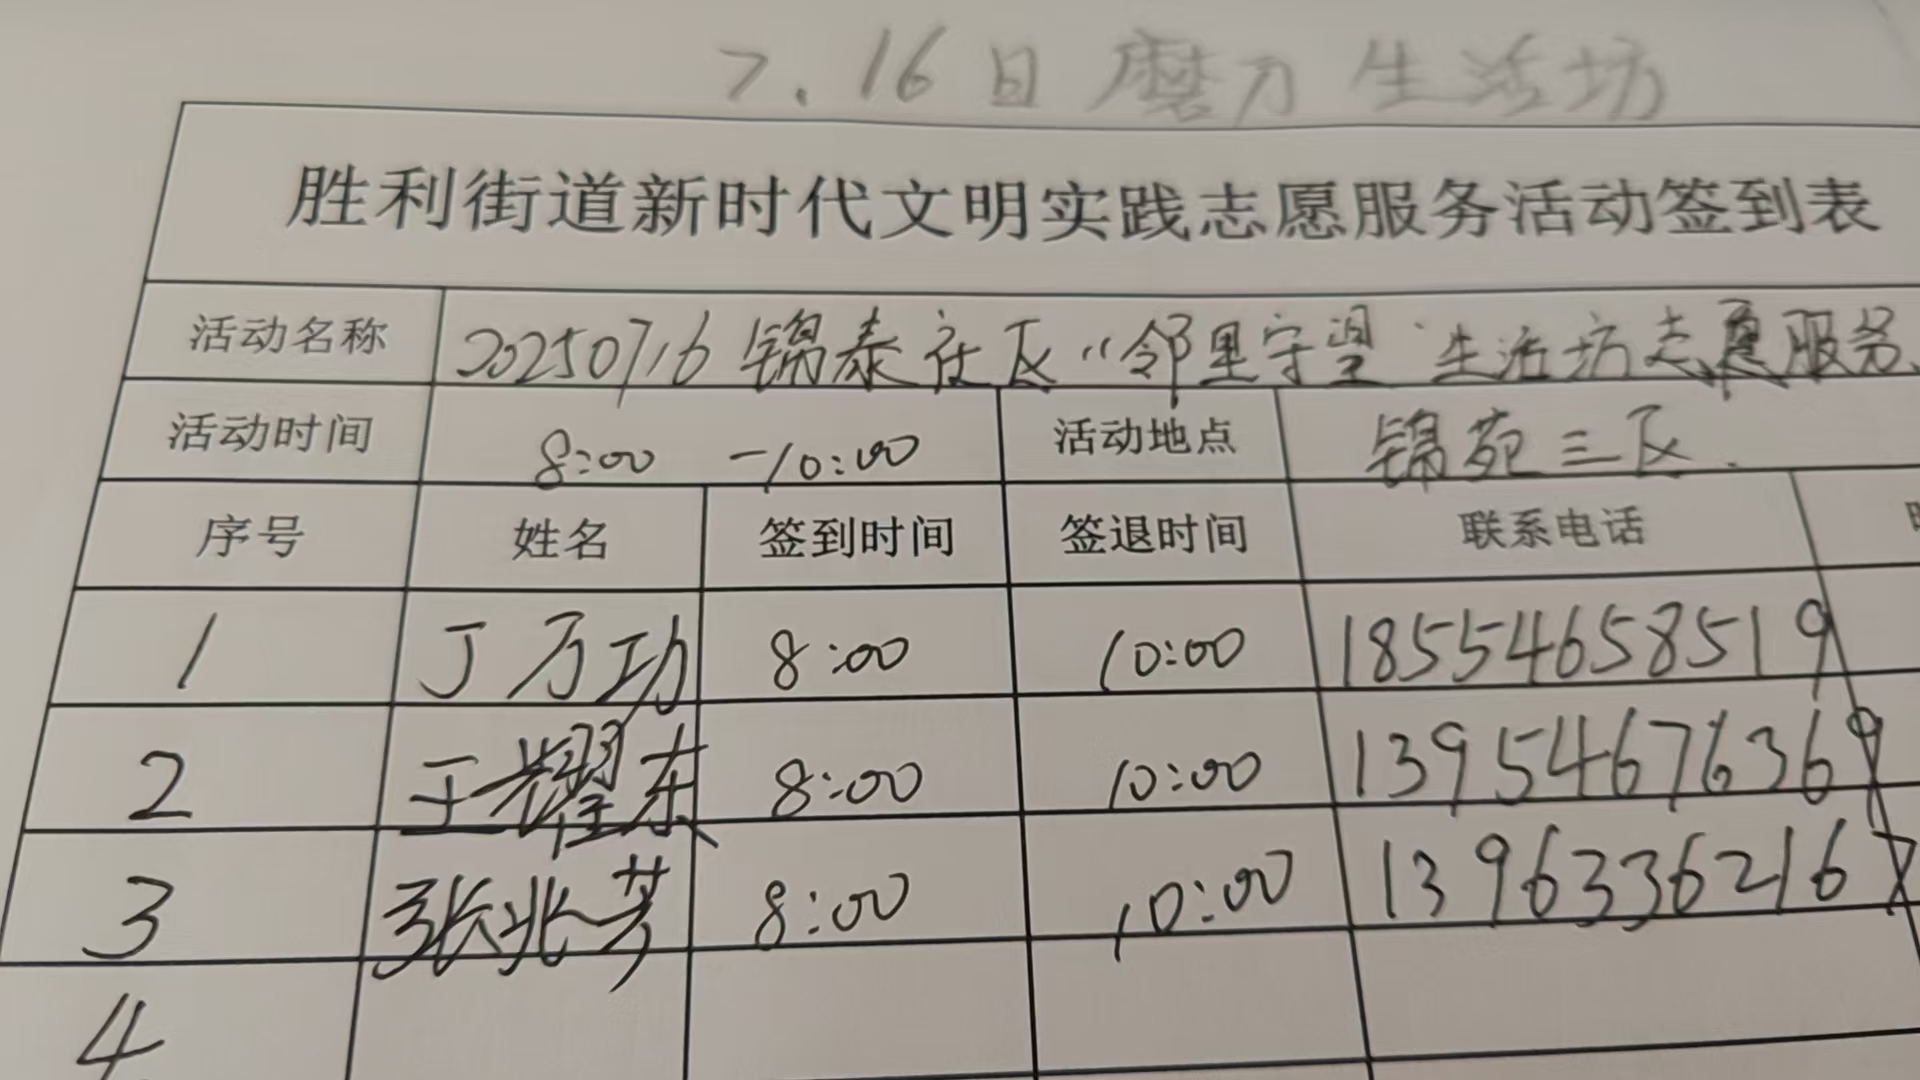 7.16日 磨刀 生活坊
胜利街道新时代文明实践志愿服务活动签到表
活动名称 20250716 锦泰社区“邻里守望”生活坊志愿服务
活动时间 8:00 -10:00 活动地点 锦苑三区.
序号 姓名 签到时间 签退时间 联系电话
1 丁万功 8:00 10:00 18554658519
2 王耀东 8:00 10:00 13954676369
3 张兆芳 8:00 10:00 13963362167
4